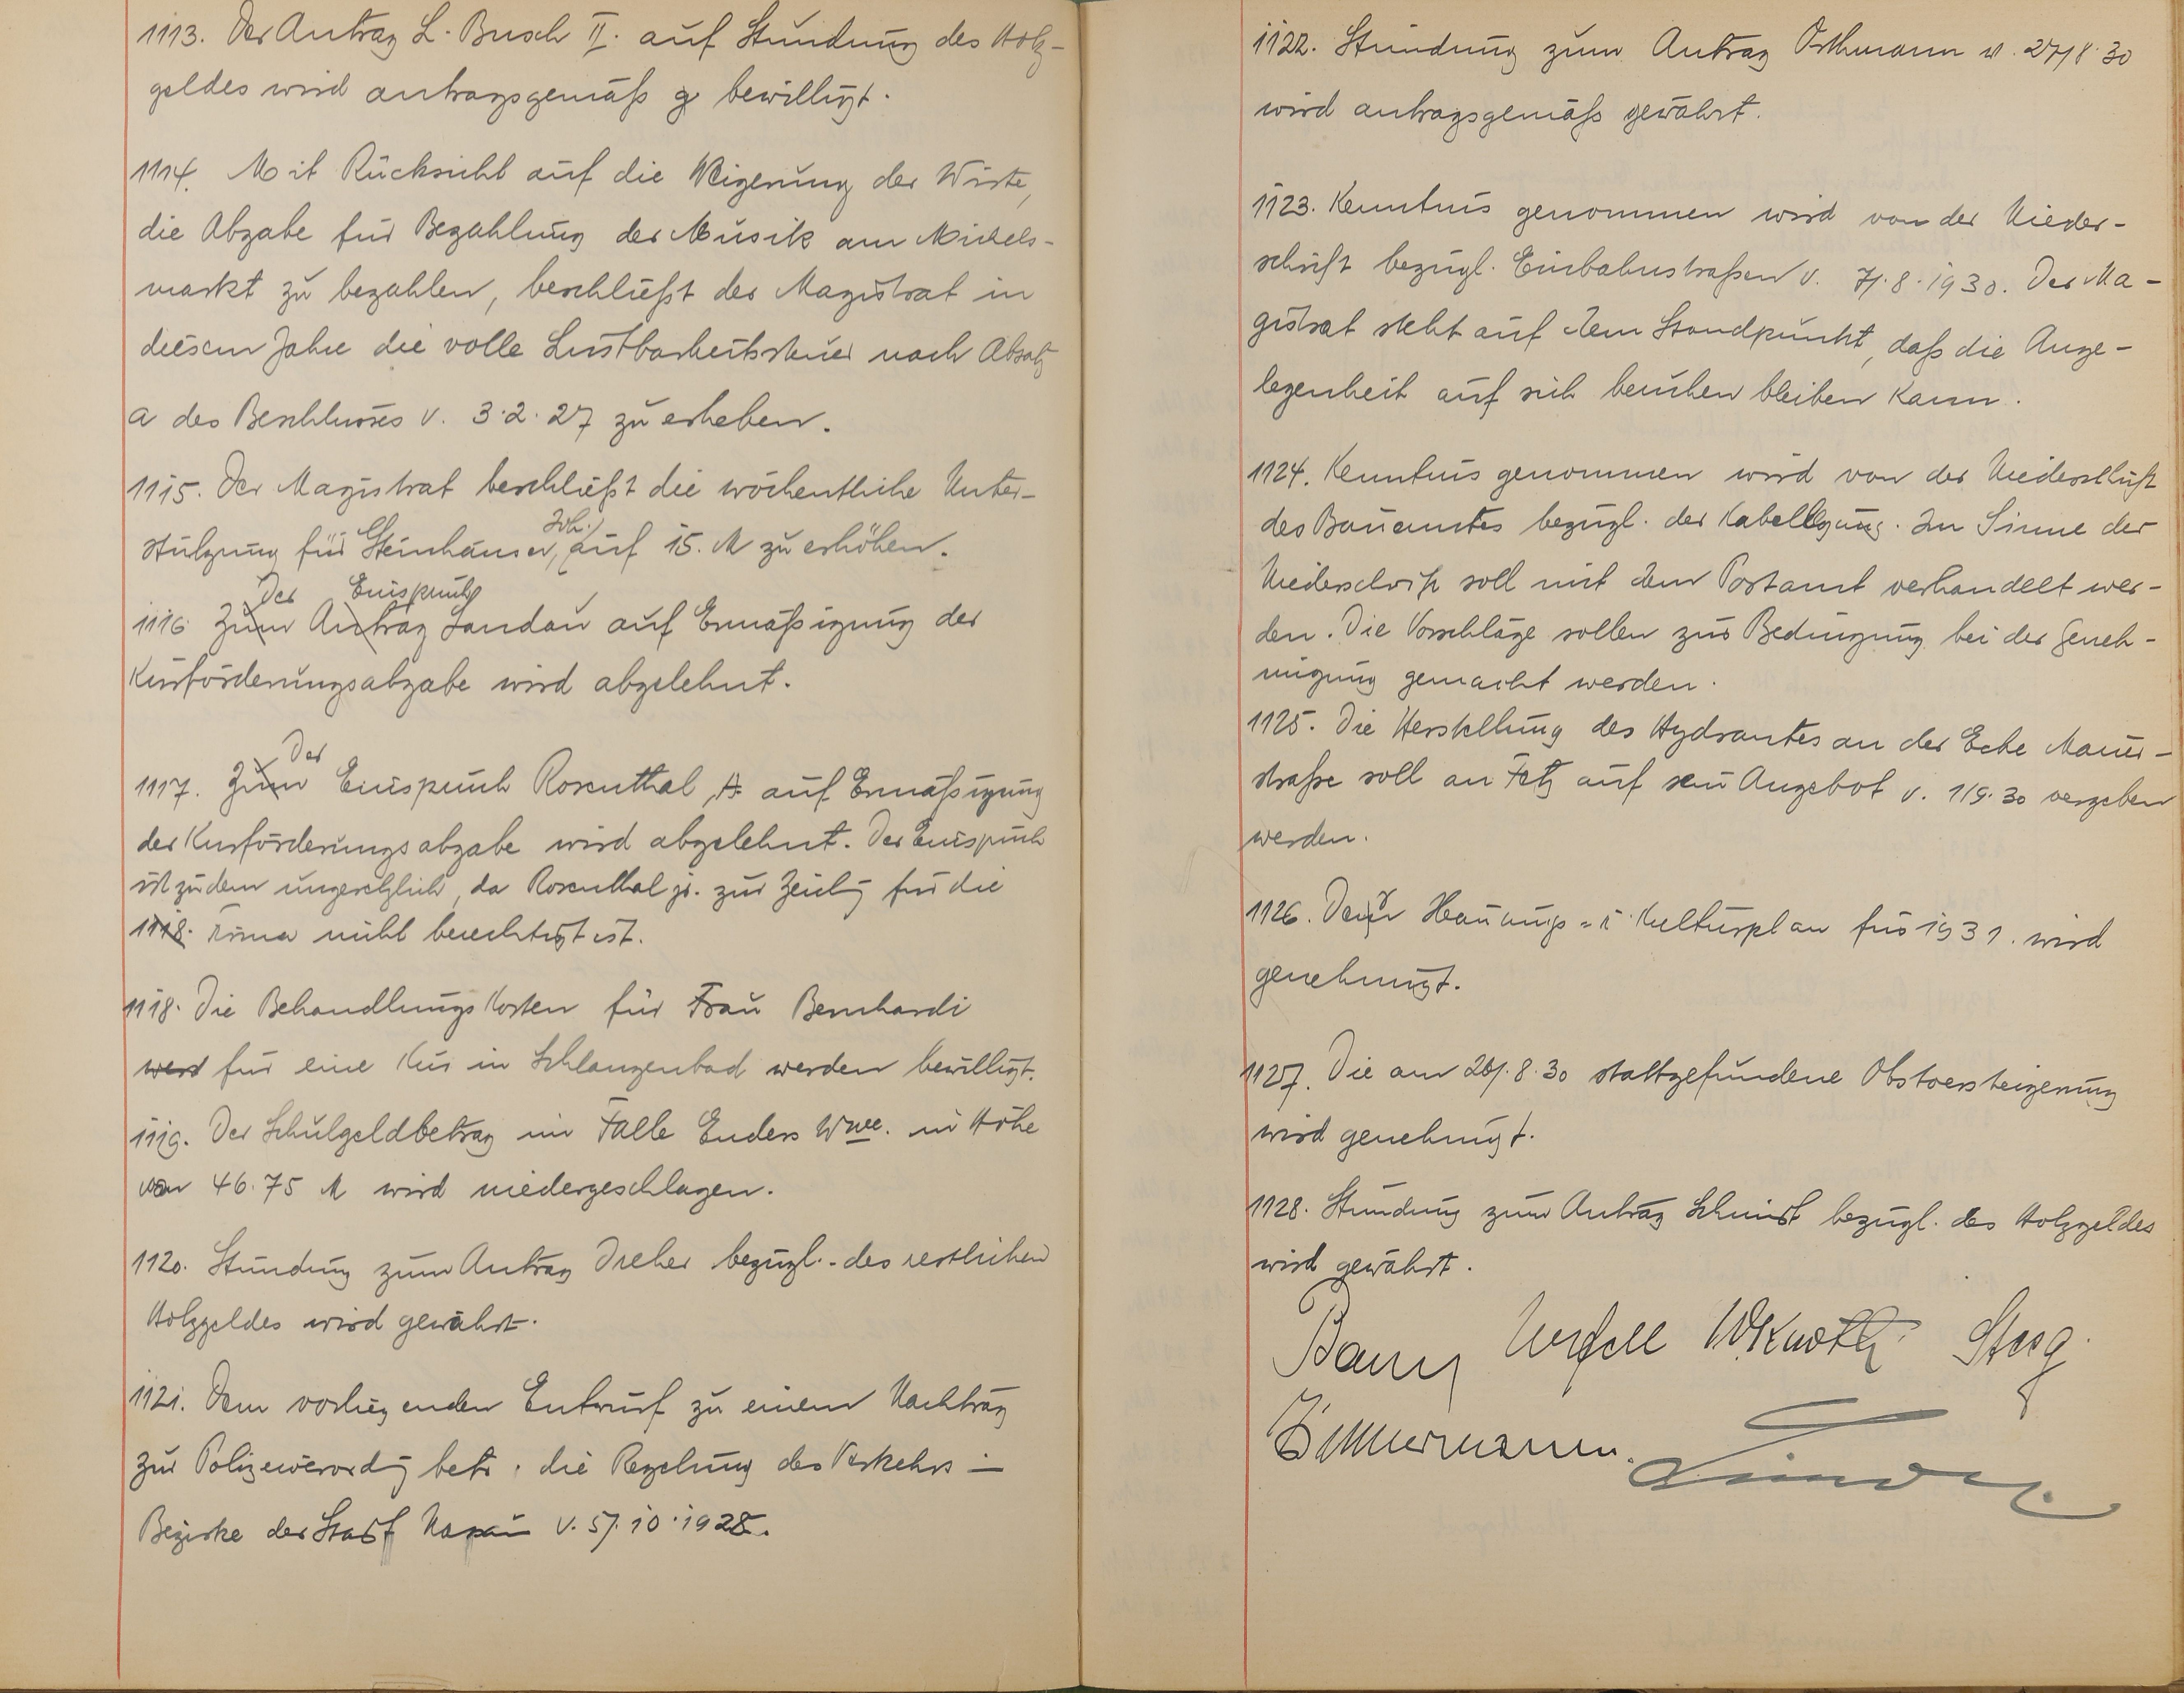 1113. Der Antrag L. Busch II. auf Stundung des Holz-
geldes wird antragsgemäß g bewilligt.
1114. Mit Rücksicht auf die Weigerung der Wirte,
die Abgabe für Bezahlung der Musik am Michels-
markt zu bezahlen, beschließt der Magistrat in
diesem Jahre die volle Lustbarkeitssteuer nach Absatz
a des Beschlusses v. 3.2.27 zu erheben.
1115. Der Magistrat beschließt die wöchentliche Unter-
Joh.
stützung für Steinhäuser, auf 15. M zu erhöhen.
Der Einspruch
1116 Zum Antrag Landau auf Ermäßigung der
Kurförderungsabgabe wird abgelehnt.
Der
1117. Zum Einspruch Rosenthal, A. auf Ermäßigung
der Kurförderungsabgabe wird abgelehnt. Der Einspruch
ist zudem ungesetzlich, da Rosenthal jr. zur Zeichg für die
1118. Firma nicht berechtigt ist.
1118. Die Behandlungskosten für Frau Bernhardi
werd für eine Kur in Schlangenbad werden bewilligt.
1119. Der Schulgeldbetrag im Falle Enders Wwe. in Höhe
von 46.75 M wird niedergeschlagen.
1120. Stundung zum Antrag Dreher bezügl. des restlichen
Holzgeldes wird gewährt.
1121. Dem vorliegenden Entwurf zu einem Nachtrag
zur Polizeiverordg betr. die Regelung des Verkehrs i
Bezirke der Stadt Nassau v. 5/.10.1928.
1122. Stundung zum Antrag Orthmann v. 27/8.30
wird antragsgemäß gewährt.
1123. Kenntnis genommen wird von der Nieder-
schrift bezügl. Einbahnstraßen v. 7/.8.1930. Der Ma-
gistrat steht auf dem Standpunkt, daß die Ange-
legenheit auf sich beruhen bleiben kann.
1124. Kenntnis genommen wird von der Niederschrift
des Bauamtes bezügl. der Kabellegung. Im Sinne der
Niederschrift soll mit dem Postamt verhandelt wer-
den. Die Vorschläge sollen zur Bedingung bei der Geneh-
migung gemacht werden.
1125. Die Herstellung des Hydrantes an der Ecke Mauer-
straße soll an Fetz auf sein Angebot v. 1/9.30 vergeben
werden.
1126. Der Hauungs- u. Kulturplan für 1931. wird
genehmigt.
1127. Die am 26/.8.30 stattgefundene Obstversteigerung
wird genehmigt.
1128. Stundung zum Antrag Schmidt bezügl. des Holzgeldes
wird gewährt.
W. Knoth
Zimmermann.